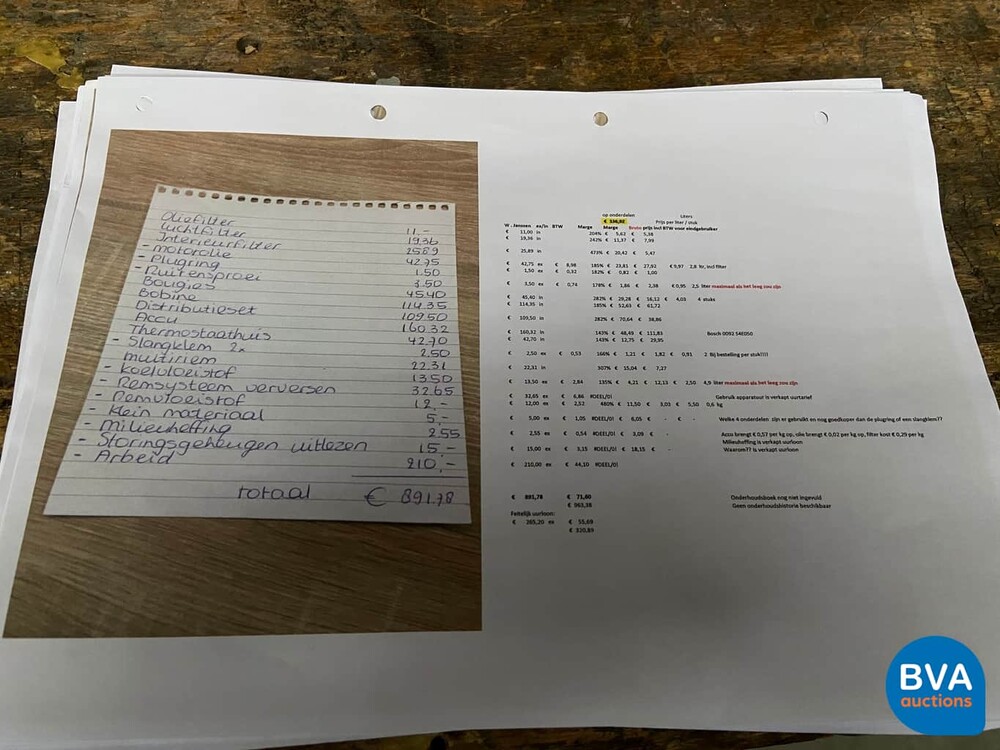 Oliefilter
Luchtfilter 11.-
Interieurfilter 19.36
- motorolie 25.89
- Plugring 42.75
- Ruitensproei 1.50
Bougies 3.50
Bobine 45.40
Distributieset 114.35
Accu 109.50
Thermostaathuis 160.32
- Slangklem 2x 42.70
multiriem 2.50
- koelvloeistof 22.31
- Remsysteem verversen 13.50
- Remvloeistof 32.65
- klein materiaal 12,-
- milieuheffing 5,-
- Storingsgeheugen uitlezen 2.55
- Arbeid 15,-
210,-
totaal € 891.78
op onderdelen Liters
€ 336,92 Prijs per liter / stuk
W. Janssen ex/in BTW Marge Marge Bruto prijs incl BTW voor eindgebruiker
€ 11,00 in 204% € 5,62 € 5,38
€ 19,36 in 242% € 11,37 € 7,99
€ 25,89 in 473% € 20,42 € 5,47
€ 42,75 ex € 8,98 185% € 23,81 € 27,92 € 9,97 2,8 ltr, incl filter
€ 1,50 ex € 0,32 182% € 0,82 € 1,00
€ 3,50 ex € 0,74 178% € 1,84 € 2,38 € 0,95 2,5 liter maximaal als het leeg zou zijn
€ 45,40 in 282% € 29,28 € 16,12 € 4,03 4 stuks
€ 114,35 in 185% € 52,63 € 61,72
€ 109,50 in 282% € 70,64 € 38,86
€ 160,32 in 143% € 48,49 € 111,83 Bosch 0092 S4E050
€ 42,70 in 143% € 12,75 € 29,95
€ 2,50 ex € 0,53 166% € 1,21 € 1,82 € 0,91 2 Bij bestelling per stuk!!!!
€ 22,31 in 307% € 15,04 € 7,27
€ 13,50 ex € 2,84 135% € 4,21 € 12,13 € 2,50 4,9 liter maximaal als het leeg zou zijn
€ 32,65 ex € 6,86 #DEEL/0! Gebruik apparatuut is verkapt uurtarief
€ 12,00 ex € 2,52 480% € 11,50 € 3,03 € 5,50 0,6 kg
€ 5,00 ex € 1,05 #DEEL/0! € 6,05 € - € 5,50 Welke 4 onderdelen zijn er gebruikt en nog goedkoper dan de plugring of een slangklem??
€ 2,55 ex € 0,54 #DEEL/0! € 3,09 € - Accu brengt € 0,57 per kg op, olie brengt € 0,02 per kg op, filter kost € 0,29 per kg
Milieuheffing is verkapt uurloon
€ 15,00 ex € 3,15 #DEEL/0! € 18,15 € - Waarom?? Is verkapt uurloon
€ 210,00 ex € 44,10 #DEEL/0!
€ 891,78 € 71,60 Onderhoudsboek nog niet ingevuld
€ 963,38 Geen onderhoudshistorie beschikbaar
Feitelijk uurloon:
€ 265,20 ex € 55,69
€ 320,89
BVA
auctions